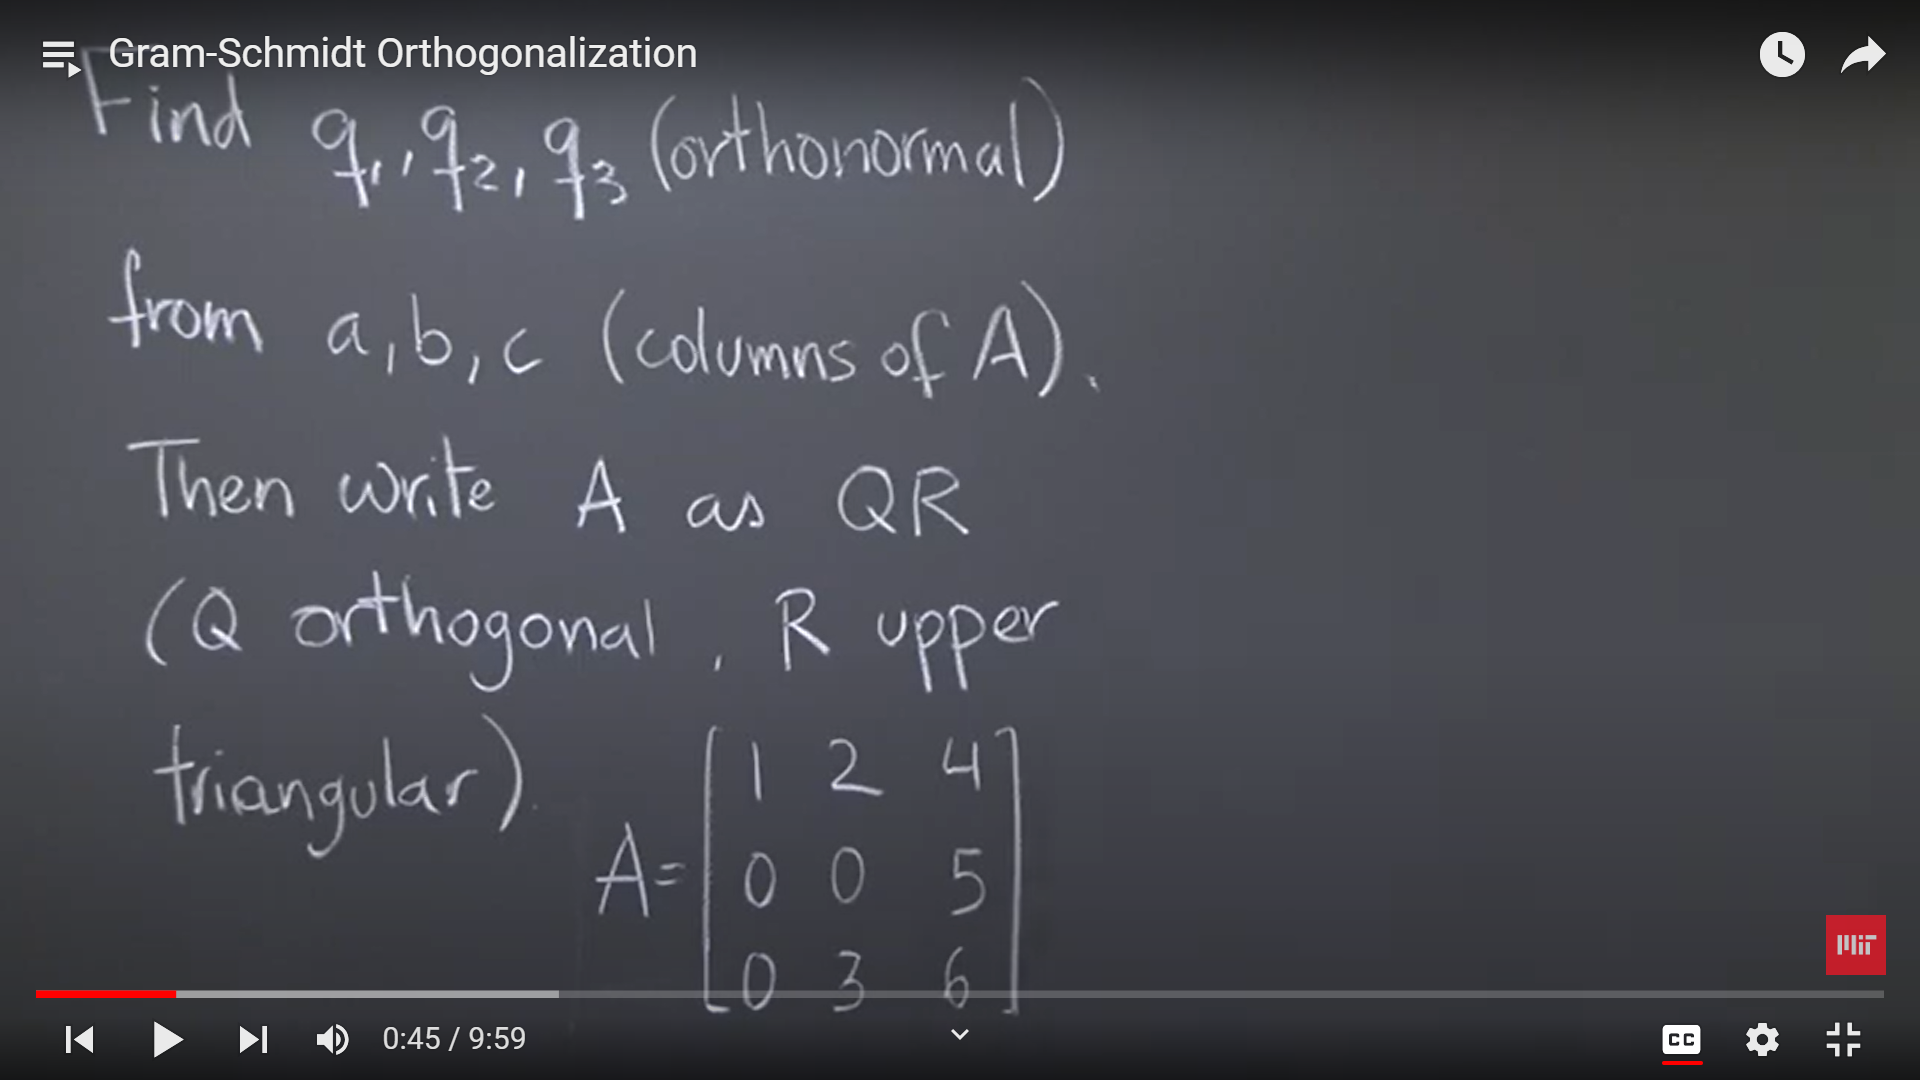 Gram-Schmidt Orthogonalization
Find q1, q2, q3 (orthonormal)
from a, b, c (columns of A).
Then write A as QR
(Q orthogonal, R upper
triangular).
A= [ 1 2 4
0 0 5
0 3 6 ]
MIT
0:45 / 9:59
CC